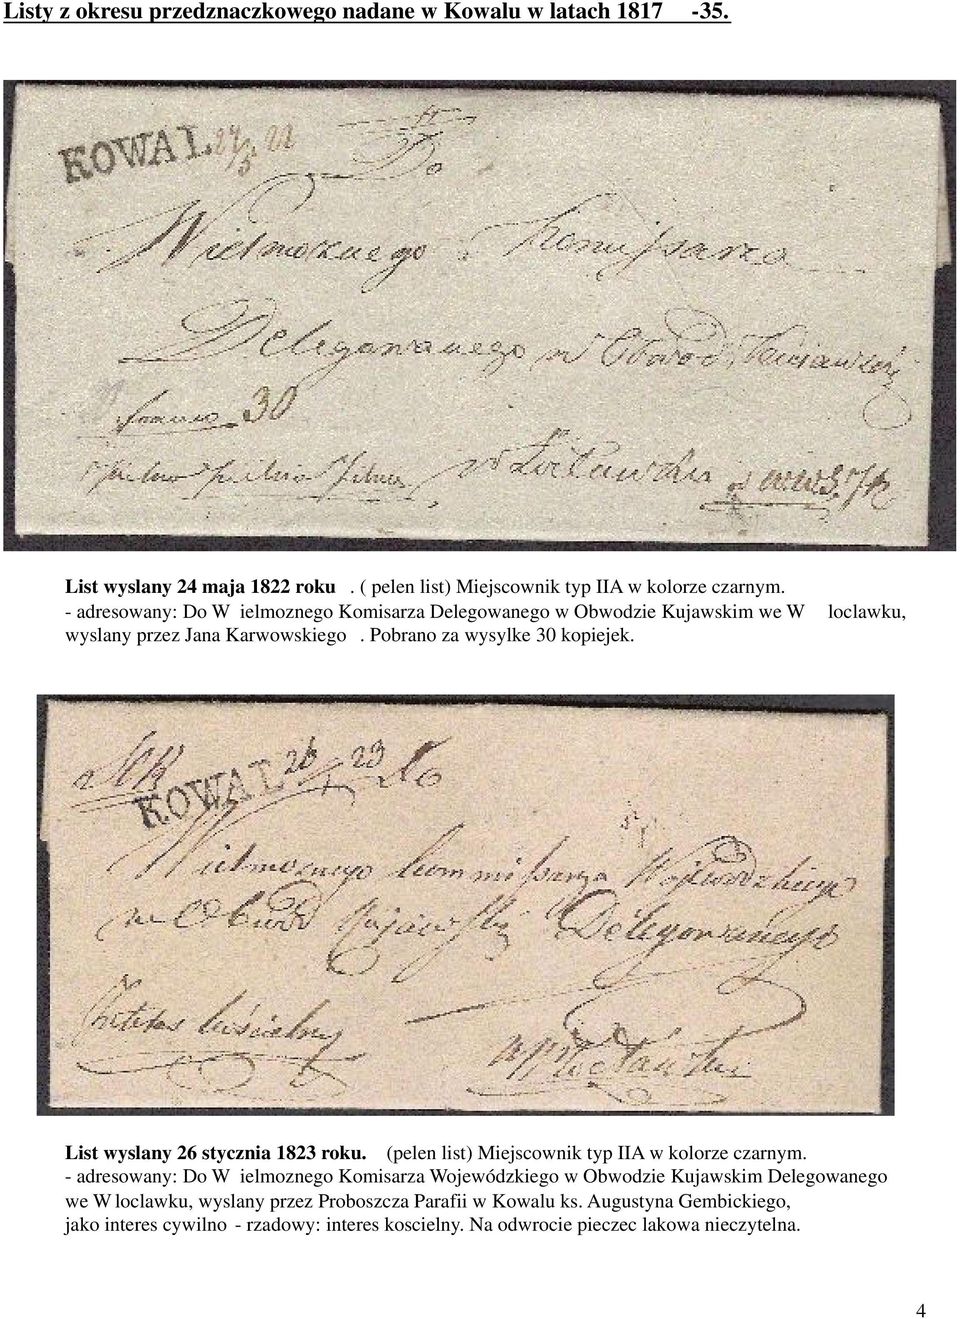 Listy z okresu przedznaczkowego nadane w Kowalu w latach 1817 -35.
KOWAL 24/5 22
Do
Wielmożnego Kommissarza
Delegowanego w Obwod
franco 30
pilno pilno pilno
List wyslany 24 maja 1822 roku . ( pelen list) Miejscownik typ IIA w kolorze czarnym.
- adresowany: Do W ielmoznego Komisarza Delegowanego w Obwodzie Kujawskim we W loclawku,
wyslany przez Jana Karwowskiego . Pobrano za wysylke 30 kopiejek.
KOWAL 26/1 23 Do
Wielmożnego Kommissarza Wojewodzkiego
w Obwod Kujawski Delegowanego
Interes kościelny
List wyslany 26 stycznia 1823 roku. (pelen list) Miejscownik typ IIA w kolorze czarnym.
- adresowany: Do W ielmoznego Komisarza Wojewódzkiego w Obwodzie Kujawskim Delegowanego
we W loclawku, wyslany przez Proboszcza Parafii w Kowalu ks. Augustyna Gembickiego,
jako interes cywilno - rzadowy: interes koscielny. Na odwrocie pieczec lakowa nieczytelna.
4